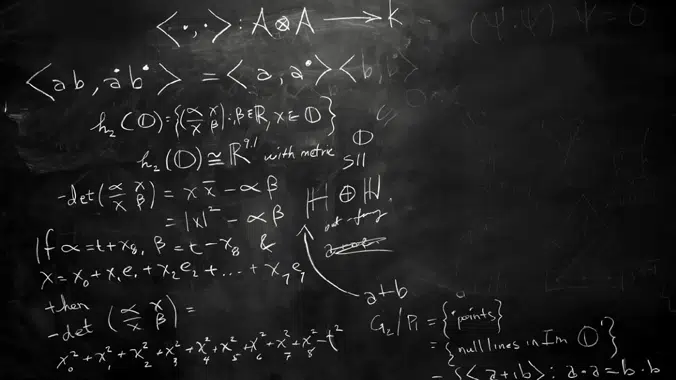 <·,·>: A⊗A → k
(Ψ·Ψ) Ψ = 0
<ab, a•b•> = <a, a•><b, b>
h₂(𝕆) = {(α x / x̄ β) : β∈ℝ, x∈𝕆}
h₂(𝕆) ≅ ℝ^9,1 with metric
-det(α x / x̄ β) = x x̄ - αβ
= |x|² - αβ
If α = t + x₈, β = t - x₈ &
x = x₀ + x₁e₁ + x₂e₂ + ... + x₇e₇
then
-det (α x / x̄ β) =
x₀² + x₁² + x₂² + x₃² + x₄² + x₅² + x₆² + x₇² + x₈² - t²
𝕆
SII
ℍ ⊕ ℍ.
a+b
G₂/P₁ = {"points}
= {null lines in Im 𝕆'}
= {<a+ib> : a·a = b·b